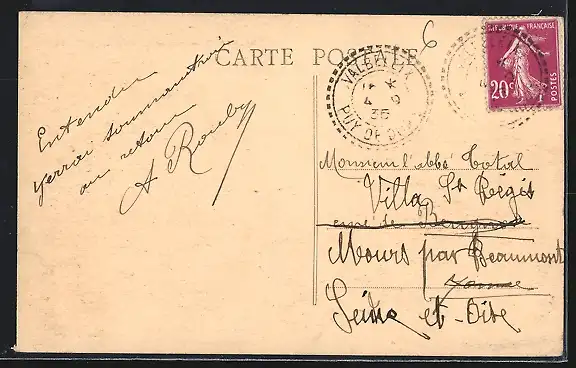 CARTE POSTALE
6
VALBELEIX
4 *
4 5
35
PUY DE DOME
REPUBLIQUE FRANÇAISE
20c
POSTES
Entendu
verrai sommantoir
au retour
A Rouby
Monsieur l'abbé Total
Villa St Régis
rue de
Mours par Beaumont
Seine et-Oise